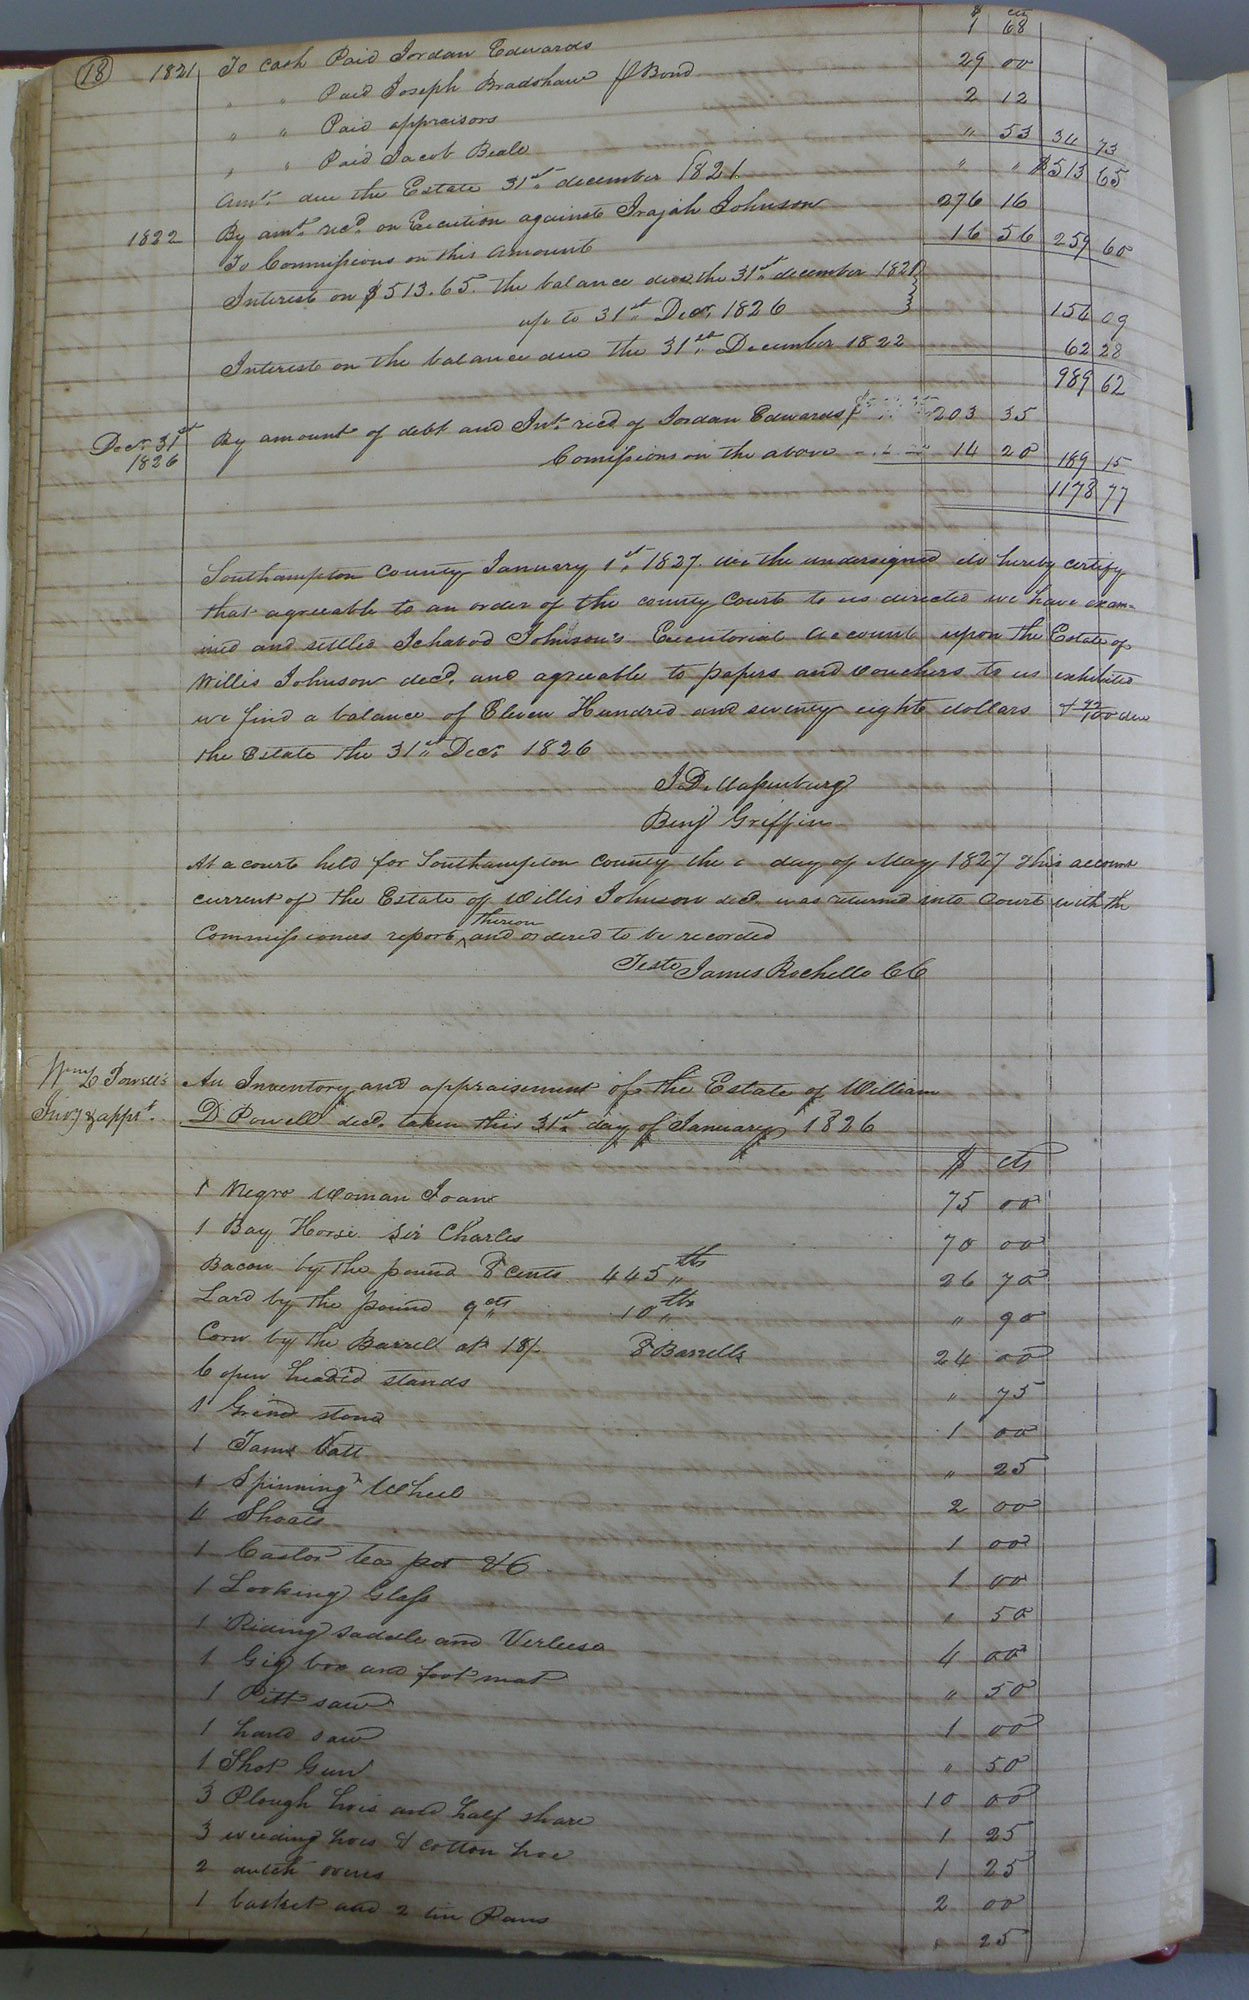 18 1821 To Cash Paid Jordan Edwards $ 1 cts 68
" " Paid Joseph Bradshaw p Bond 29 00
" " Paid appraisors 2 12
" " Paid Jacob Beale " 53 34 73
Amt. due the Estate 31st december 1821 " " $513 65
1822 By amt. recd. on Execution against Irajah Johnson 276 16
To Commissions on this amount 16 56 259 60
Interest on $513.65. the balance due the 31st december 1821
up to 31st Decr. 1826 154 09
Interest on the balance due the 31st December 1822 62 28
989 62
Decr. 31st 1826 By amount of debt and Int. recd of Jordan Edwards 203 35
Comissions on the above 14 20 189 15
1178 77
Southampton County January 1st 1827. we the undersigned do hereby certify
that agreeable to an order of the county Court to us directed we have exam-
ined and settled Ichabod Johnson's Executorial account upon the Estate of
Willis Johnson decd. and agreeable to papers and vouchers to us exhibited
we find a balance of Eleven Hundred and seventy eight dollars & 77/100 due
the Estate the 31st Decr 1826
J.D. Massenburg
Benj Griffin
At a court held for Southampton County the day of May 1827 This account
current of the Estate of Willis Johnson decd. was returned into Court with th
Commissioners report thereon and ordered to be recorded
Teste James Rochelle CC
Wm D Powell's
Invy & apprt.
An Inventory and appraisement of the Estate of William
D Powell decd. taken this 31st day of January 1826
$ cts
1 Negro Woman Joan 75 00
1 Bay Horse Sir Charles 70 00
Bacon by the pound 8 cents 445 lbs 26 70
Lard by the pound 9 cts 10 lbs " 90
Corn by the Barrell at 18/. 8 Barrells 24 00
6 open headed stands " 75
1 Grind stone 1 00
1 Tann Vatt " 25
1 Spinning Wheel 2 00
4 Shoats 1 00
1 Castor tea pot &C 1 00
1 Looking Glass " 50
1 Riding saddle and 4 00
1 Gig box and foot mat " 50
1 Pitt saw 1 00
1 hand saw " 50
1 Shot Gun 10 00
3 Plough hoes and half share 1 25
3 weeding hoes & cotton hoe 1 25
2 dutch ovens 2 00
1 basket and 2 tin Pans " 25